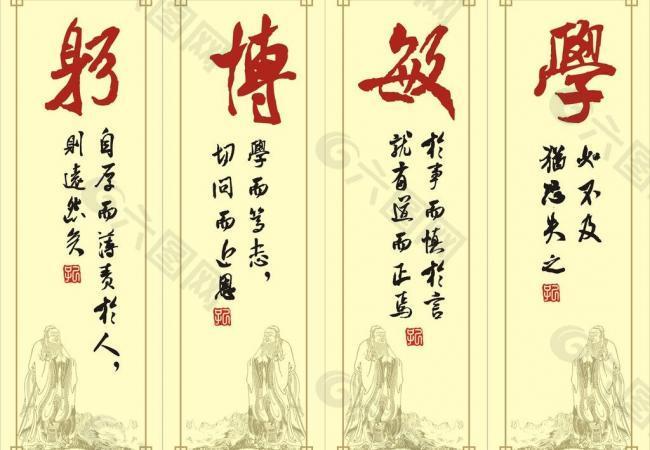 學
如不及
猶恐失之
敏
於事而慎於言
就有道而正焉
博
學而篤志，
切問而近恩
躬
自厚而薄責於人，
則遠然矣
六图网